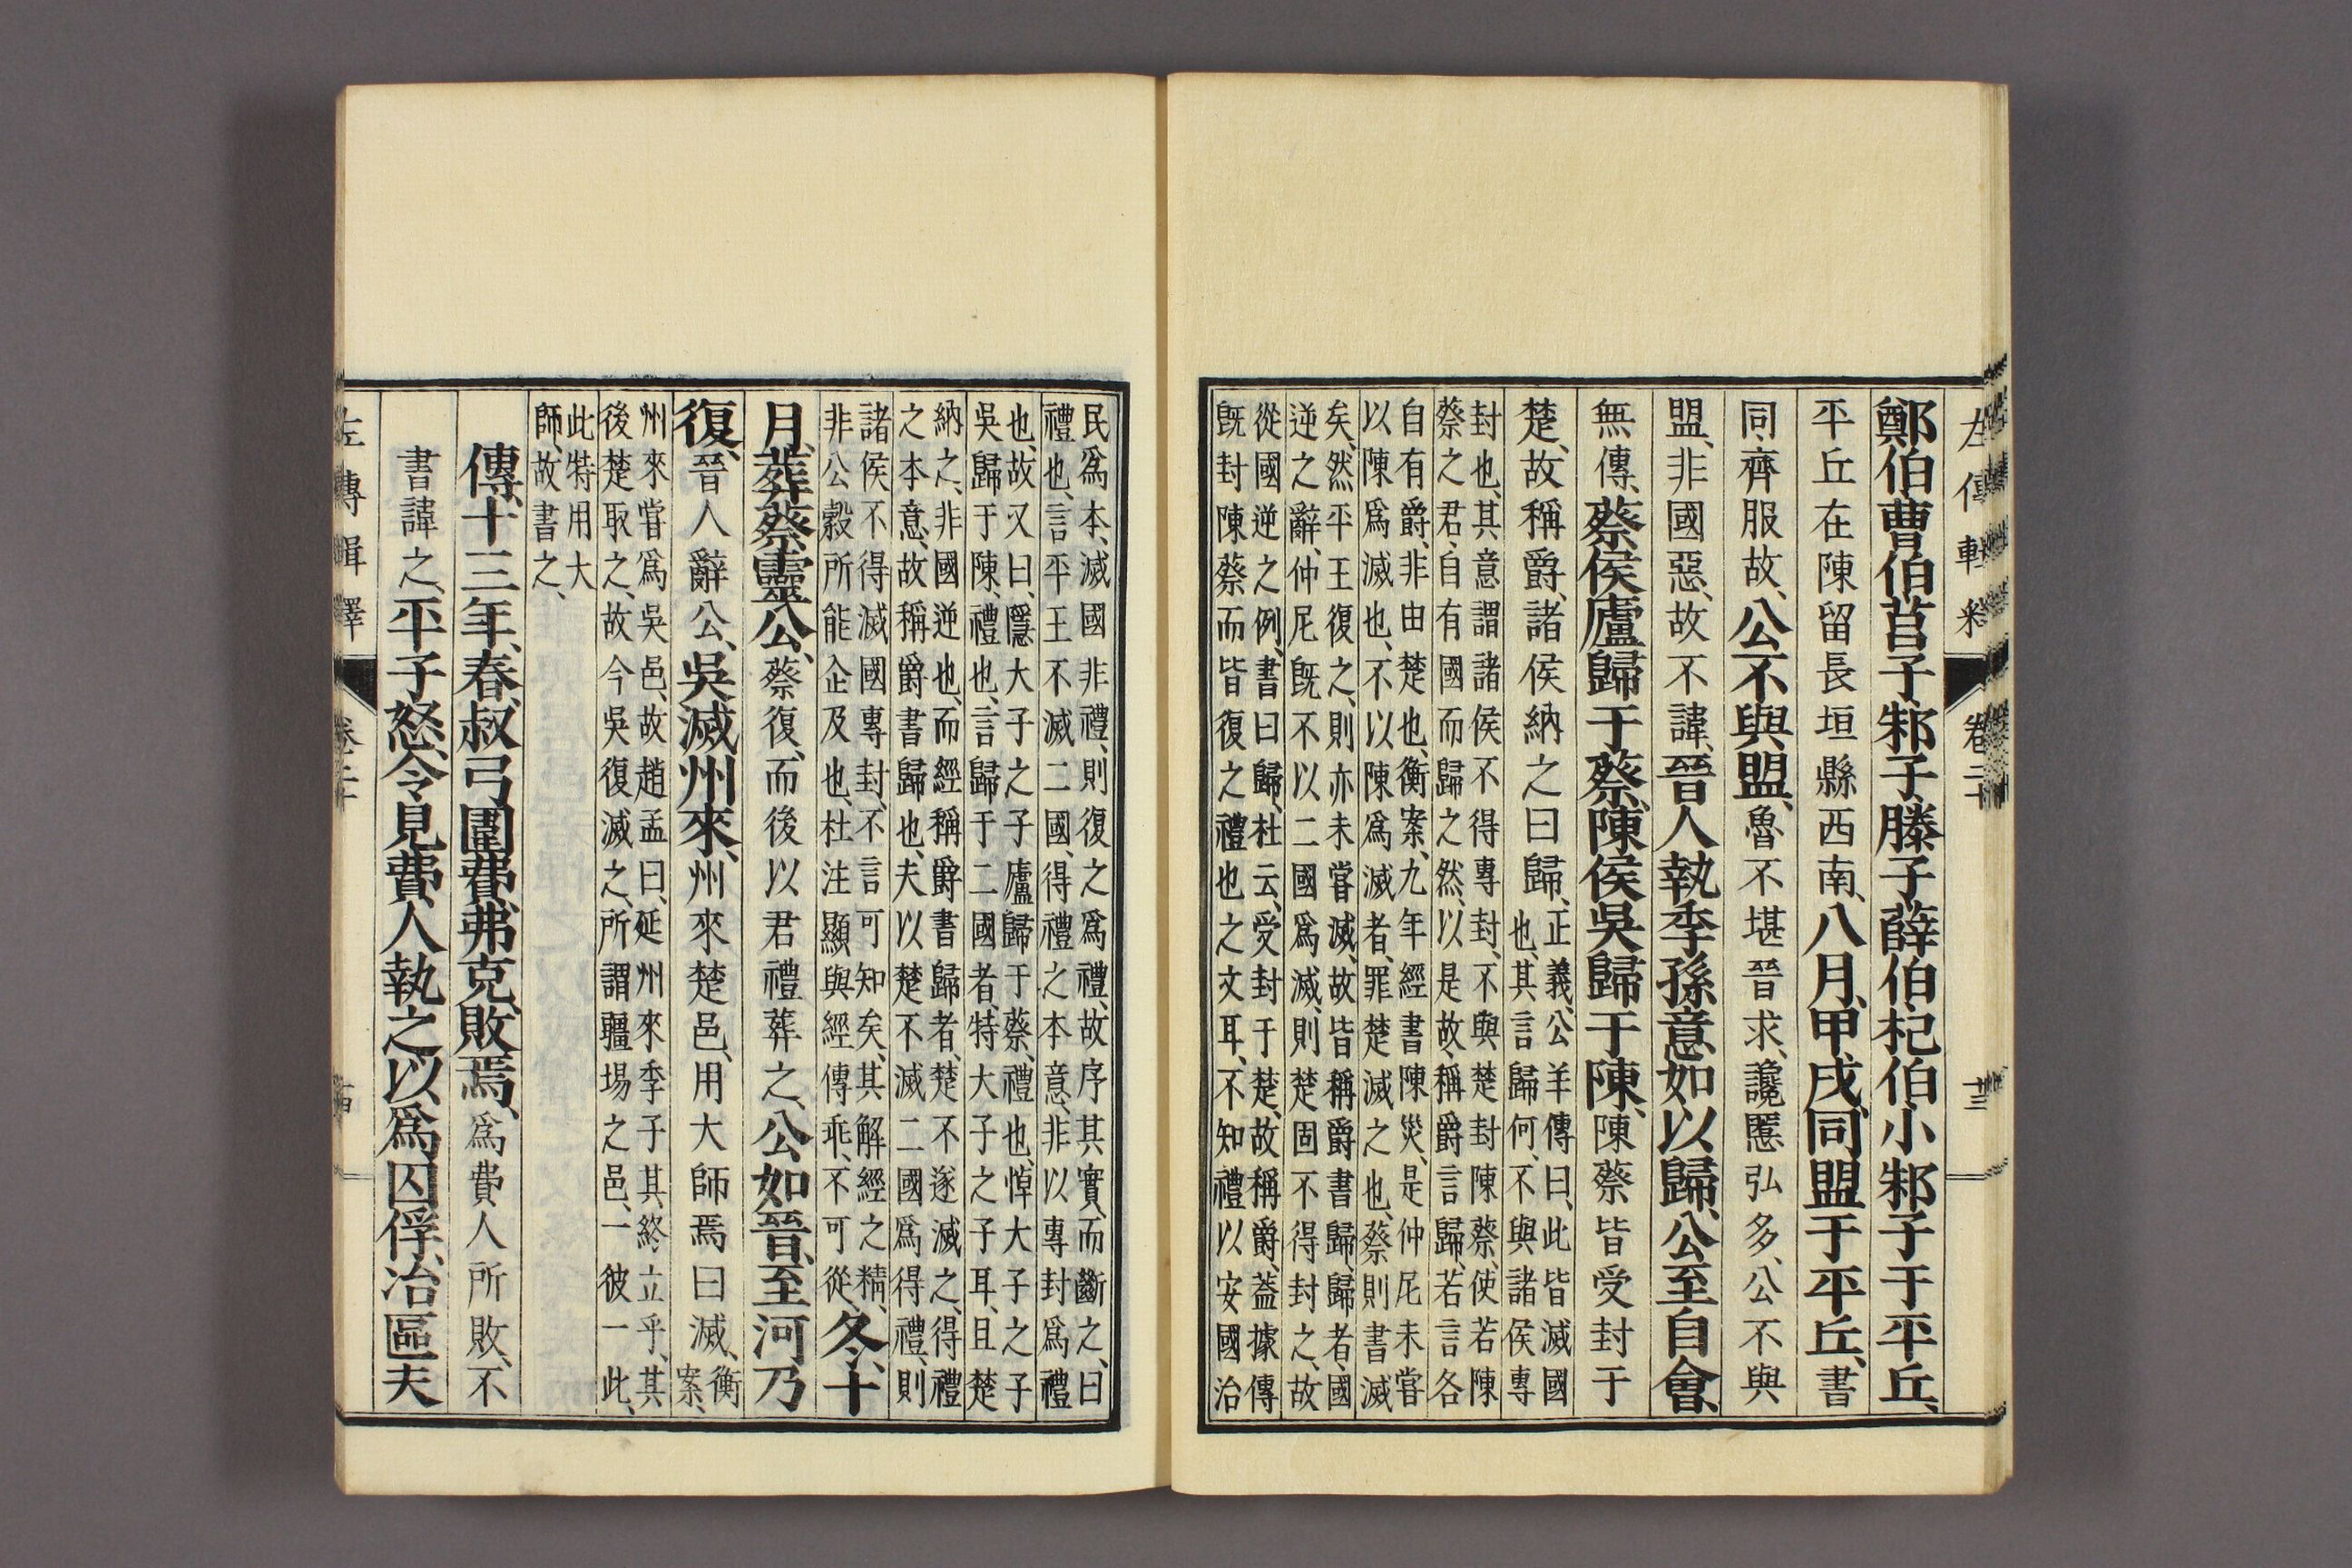 左傳輯釋 卷二十 十三
鄭伯曹伯莒子邾子滕子薛伯杞伯小邾子于平丘、
平丘在陳留長垣縣西南、八月、甲戌、同盟于平丘、書
同、齊服故、公不與盟、魯不堪晉求、讒慝弘多、公不與
盟、非國惡、故不諱、晉人執季孫意如以歸、公至自會、
無傳、蔡侯廬歸于蔡、陳侯吳歸于陳、陳蔡皆受封于
楚、故稱爵、諸侯納之曰歸、正義、公羊傳曰、此皆滅國
也、其言歸何、不與諸侯專
封也、其意謂諸侯不得專封、不與楚封陳蔡、使若陳
蔡之君、自有國而歸之然、以是故、稱爵言歸、若言各
自有爵、非由楚也、衡案、九年經書陳災、是仲尼未嘗
以陳爲滅也、不以陳爲滅者、罪楚滅之也、蔡則書滅
矣、然平王復之、則亦未嘗滅、故皆稱爵書歸、歸者、國
逆之辭、仲尼既不以二國爲滅、則楚固不得封之、故
從國逆之例、書曰歸、杜云、受封于楚、故稱爵、蓋據傳
既封陳蔡而皆復之禮也之文耳、不知禮以安國治
民爲本、滅國非禮、則復之爲禮、故序其實、而斷之、曰
禮也、言平王不滅二國、得禮之本意、非以專封爲禮
也、故又曰、隱大子之子廬歸于蔡、禮也、悼大子之子
吳歸于陳、禮也、言歸于二國者、特大子之子耳、且楚
納之、非國逆也、而經稱爵書歸者、楚不遂滅之、得禮
之本意、故稱爵書歸也、夫以楚不滅二國爲得禮、則
諸侯不得滅國專封、不言可知矣、其解經之精、
非公穀所能企及也、杜注顯與經傳乖、不可從、冬、十
月、葬蔡靈公、蔡復、而後以君禮葬之、公如晉、至河乃
復、晉人辭公、吳滅州來、州來楚邑、用大師焉曰滅、衡
案、
州來嘗爲吳邑、故趙孟曰、延州來季子其終立乎、其
後楚取之、故今吳復滅之、所謂疆場之邑、一彼一此、
此特用大
師、故書之、
傳、十三年、春、叔弓圍費、弗克、敗焉、爲費人所敗、不
書諱之、平子怒、令見費人執之以爲囚俘、冶區夫
左傳輯釋 卷二十 十四